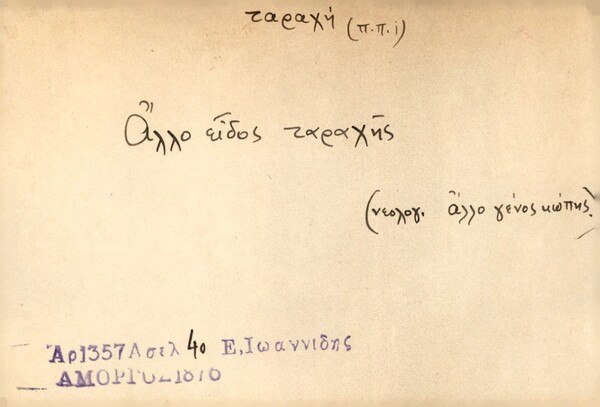 ταραχή (π.π.ι)
Ἄλλο εἶδος ταραχῆς
(νεολογ. ἄλλο γένος κώπης)
Ἀρ1357Λσελ 40 Ε, Ιωαννιδης
ΑΜΟΡΓΟΣ1876